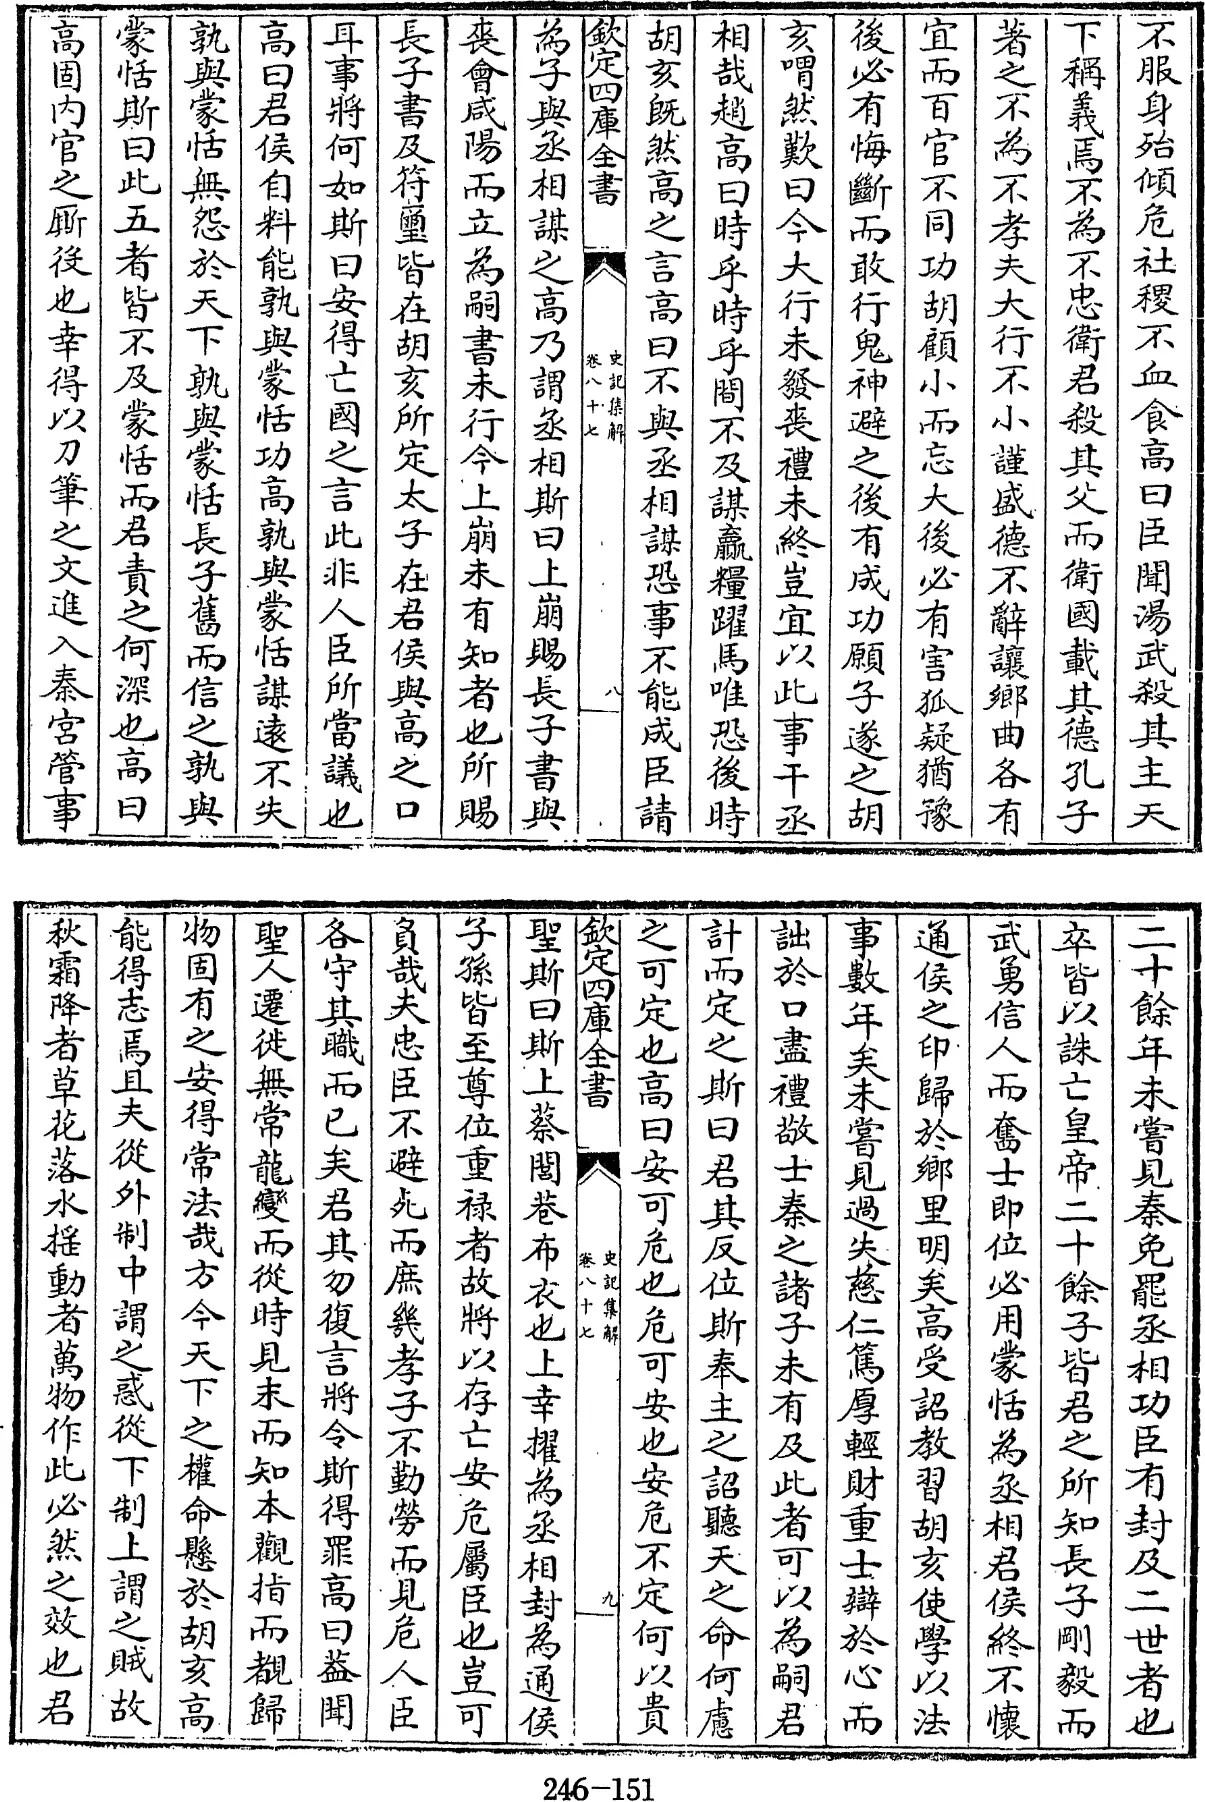 不服身殆傾危社稷不血食高曰臣聞湯武殺其主天
下稱義焉不為不忠衛君殺其父而衛國載其德孔子
著之不為不孝夫大行不小謹盛德不辭讓鄉曲各有
宜而百官不同功胡顧小而忘大後必有害狐疑猶豫
後必有悔斷而敢行鬼神避之後有成功願子遂之胡
亥喟然歎曰今大行未發喪禮未終豈宜以此事干丞
相哉趙高曰時乎時乎間不及謀贏糧躍馬唯恐後時
胡亥既然高之言高曰不與丞相謀恐事不能成臣請
欽定四庫全書
史記集解
卷八十七
八
為子與丞相謀之高乃謂丞相斯曰上崩賜長子書與
喪會咸陽而立為嗣書未行今上崩未有知者也所賜
長子書及符璽皆在胡亥所定太子在君侯與高之口
耳事將何如斯曰安得亡國之言此非人臣所當議也
高曰君侯自料能孰與蒙恬功高孰與蒙恬謀遠不失
孰與蒙恬無怨於天下孰與蒙恬長子舊而信之孰與
蒙恬斯曰此五者皆不及蒙恬而君責之何深也高曰
高固内官之厮役也幸得以刀筆之文進入秦宮管事
二十餘年未嘗見秦免罷丞相功臣有封及二世者也
卒皆以誅亡皇帝二十餘子皆君之所知長子剛毅而
武勇信人而奮士即位必用蒙恬為丞相君侯終不懷
通侯之印歸於鄉里明矣高受詔教習胡亥使學以法
事數年矣未嘗見過失慈仁篤厚輕財重士辯於心而
詘於口盡禮敬士秦之諸子未有及此者可以為嗣君
計而定之斯曰君其反位斯奉主之詔聽天之命何慮
之可定也高曰安可危也危可安也安危不定何以貴
欽定四庫全書
史記集解
卷八十七
九
聖斯曰斯上蔡閭巷布衣也上幸擢為丞相封為通侯
子孫皆至尊位重祿者故將以存亡安危屬臣也豈可
負哉夫忠臣不避死而庶幾孝子不勤勞而見危人臣
各守其職而已矣君其勿復言將令斯得罪高曰葢聞
聖人遷徙無常龍變而從時見末而知本觀指而覩歸
物固有之安得常法哉方今天下之權命懸於胡亥高
能得志焉且夫從外制中謂之惑從下制上謂之賊故
秋霜降者草花落水摇動者萬物作此必然之效也君
246-151